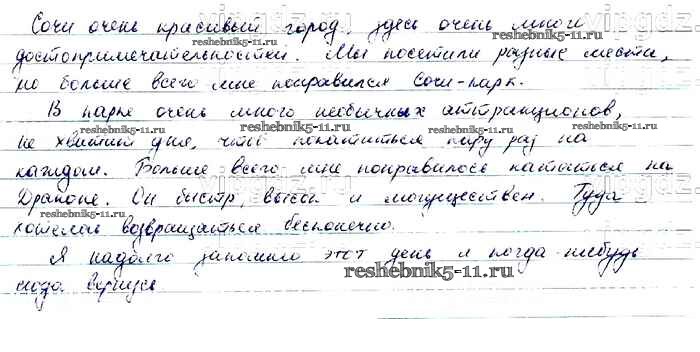 Сочи очень красивый город, здесь очень много
достопримечательностей. Мы посетили разные места,
но больше всего мне понравился Сочи-парк.
В парке очень много необычных аттракционов,
не хватит дня, чтоб покататься пару раз на
каждом. Больше всего мне понравилось кататься на
Драконе. Он быстр, высок и могуществен. Туда
хотелось возвращаться бесконечно.
Я надолго запомню этот день и когда-нибудь
сюда вернусь
vipgdz.ru
reshebnik5-11.ru
reshebnik5-11.ru
reshebnik5-11.ru
reshebnik5-11.ru
reshebnik5-11.ru
reshebnik5-11.ru